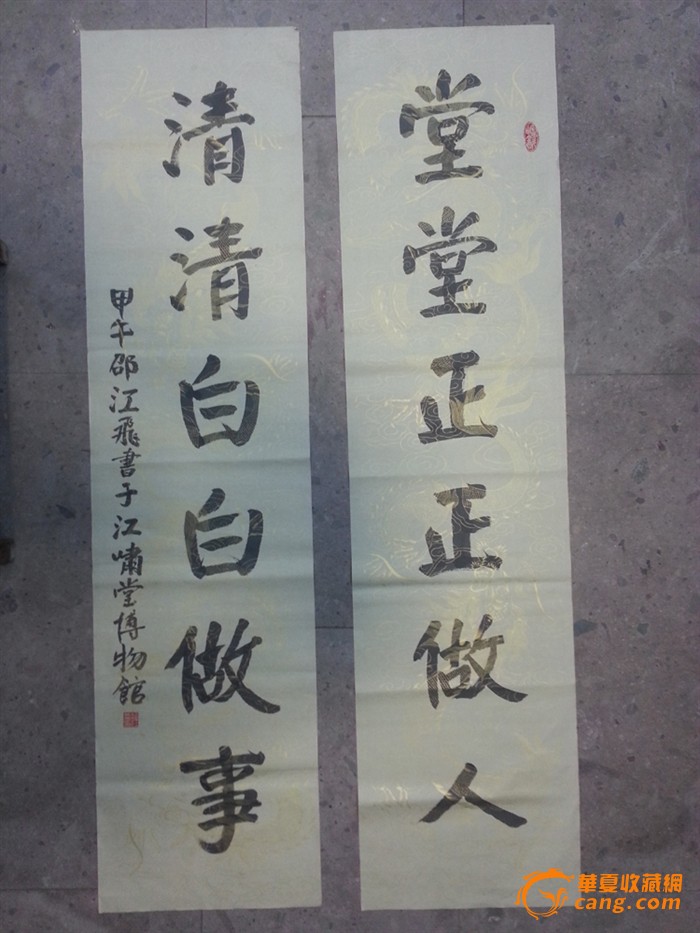 堂堂正正做人
清清白白做事
甲午邵江飛書于江嘯堂博物館
華夏收藏網
cang.com